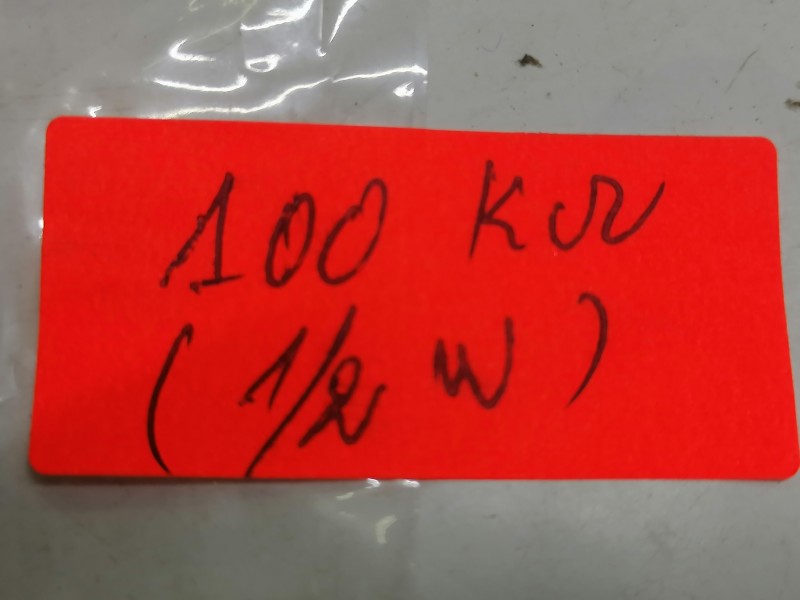 100 KΩ
(1/2 W)